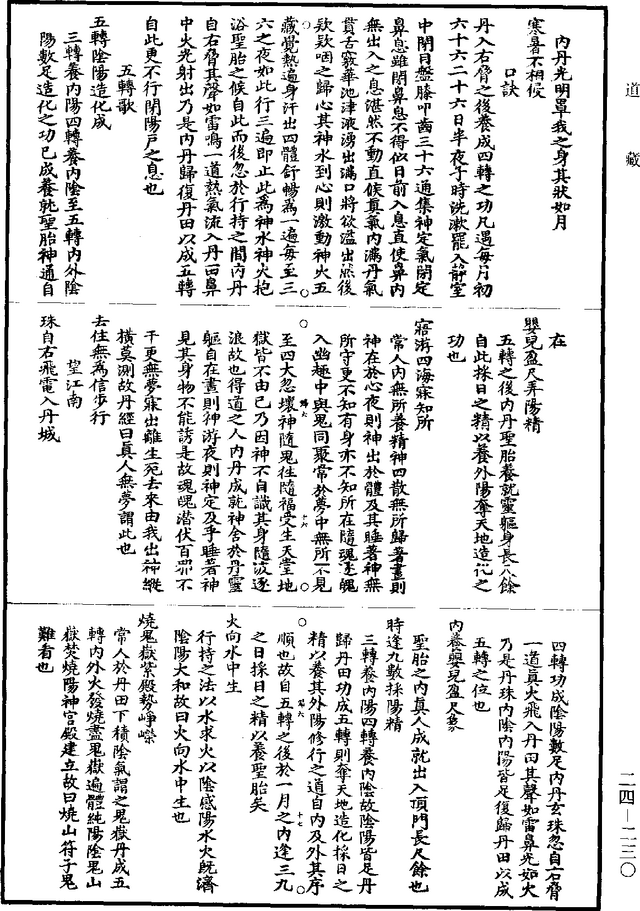 道藏
内丹光明罩我之身其狀如月
寒暑不相侵
口訣
丹入右脅之後養成四轉之功凡遇每月初
六十六二十六日半夜子時洗漱罷入靜室
中閉目盤膝叩齒三十六通集神定氣閉定
鼻息雖閉鼻息不得似日前入息直使鼻内
無出入之息湛然不動直候真氣内滿丹氣
貫舌竅華池津液湧出滿口將欲溢出然後
欵欵咽之歸心其神水到心則激動神火五
藏覺熱遍身汗出四體舒暢爲一遍每至三
六之夜如此行三遍即止此爲神水神火抱
浴聖胎之候自此而後忽於行持之間内丹
自右脅其聲如雷鳴一道熱氣流入丹田鼻
中火光射出乃是内丹歸復丹田以成五轉
自此更不行閉陽戸之息也
五轉歌
五轉陰陽造化成
三轉養内陽四轉養内陰至五轉内外陰
陽數足造化之功已成養就聖胎神通自
在
嬰兒盈尺弄陽精
五轉之後内丹聖胎養就靈軀身長尺餘
自此採日之精以養外陽奪天地造化之
功也
寤游四海寐知所
常人内無所養精神四散無所歸著晝則
神在於心夜則神出於體及其睡著神無
所守更不知有身亦不知所在隨魂逐魄
入幽趣中與鬼同聚常於夢中無所不見
至四大忽壞神隨鬼往隨福受生天堂地
獄皆不由己乃因神不自識其身隨波逐
浪故也得道之人内丹成就神舍於丹靈
軀自在晝則神游夜則神定及乎睡著神
見其身物不能誘是故魂魄潜伏百邪不
干更無夢寐出離生死去來由我出神縱
横莫測故丹經曰真人無夢謂此也
去住無爲信步行
望江南
珠自右飛電入丹城
四轉功成陰陽數足内丹玄珠忽自右脅
一道真火飛入丹田其聲如雷鼻光如火
乃是丹珠内陰内陽皆足復歸丹田以成
五轉之位也
内養嬰兒盈尺多
聖胎之内真人成就出入頂門長尺餘也
時逢九數採陽精
三轉養内陽四轉養内陰故陰陽皆足丹
歸丹田功成五轉則奪天地造化採日之
精以養其外陽修行之道自内及外其序
順也故自五轉之後於一月之内逢三九
之日採日之精以養聖胎矣
火向水中生
行持之法以水求火以陰感陽水火既濟
陰陽大和故曰火向水中生也
燒鬼獄紫殿勢崢嶸
常人於丹田下積陰氣謂之鬼獄丹成五
轉内外火發燒盡鬼獄遍體純陽陰鬼山
獄焚燒陽神宫殿建立故曰燒山符子鬼
難看也
二四—二三〇